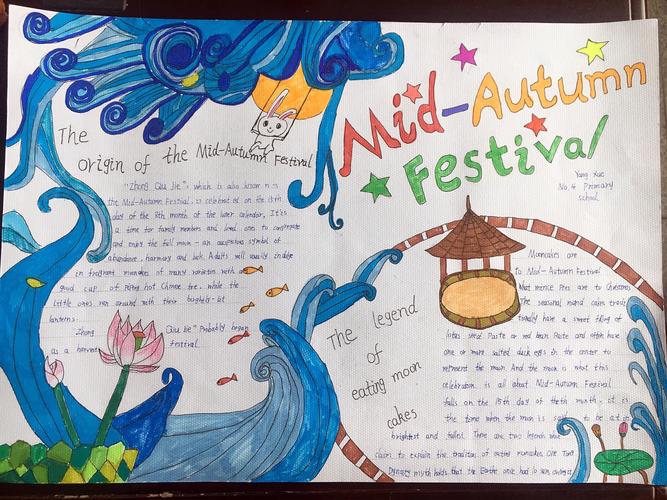 Mid-Autumn
Festival
Yang Xue
No.4 Primary
school
The
origin of the Mid-Autumn Festival
"Zhong Qiu Jie", which is also known as
the Mid-Autumn Festival, is celebrated on the 15th
day of the 8th month of the lunar calendar. It's
a time for family members and loved ones to congregate
and enjoy the full moon - an auspicious symbol of
abundance, harmony and luck. Adults will usually indulge
in fragrant mooncakes of many varieties with a
good cup of piping hot Chinese tea, while the
little ones run around with their brightly-lit
lanterns.
"Zhong Qiu Jie" probably began
as a harvest festival.
The legend
of
eating moon
cakes
Mooncakes are
to Mid-Autumn Festival
what mince pies are to Christmas.
The seasonal round cakes tradi
tionally have a sweet filling of
lotus seed paste or red bean Paste and often have
one or more salted duck eggs in the center to
represent the moon. And the moon is what this
celebration is all about. Mid-Autumn Festival
falls on the 15th day of the 8th month, it is
the time when the moon is said to be at its
brightest and fullest. There are two legends which
claim to explain the tradition of eating mooncakes. One Tang
Dynasty myth holds that the Earth once had 10 suns circling it